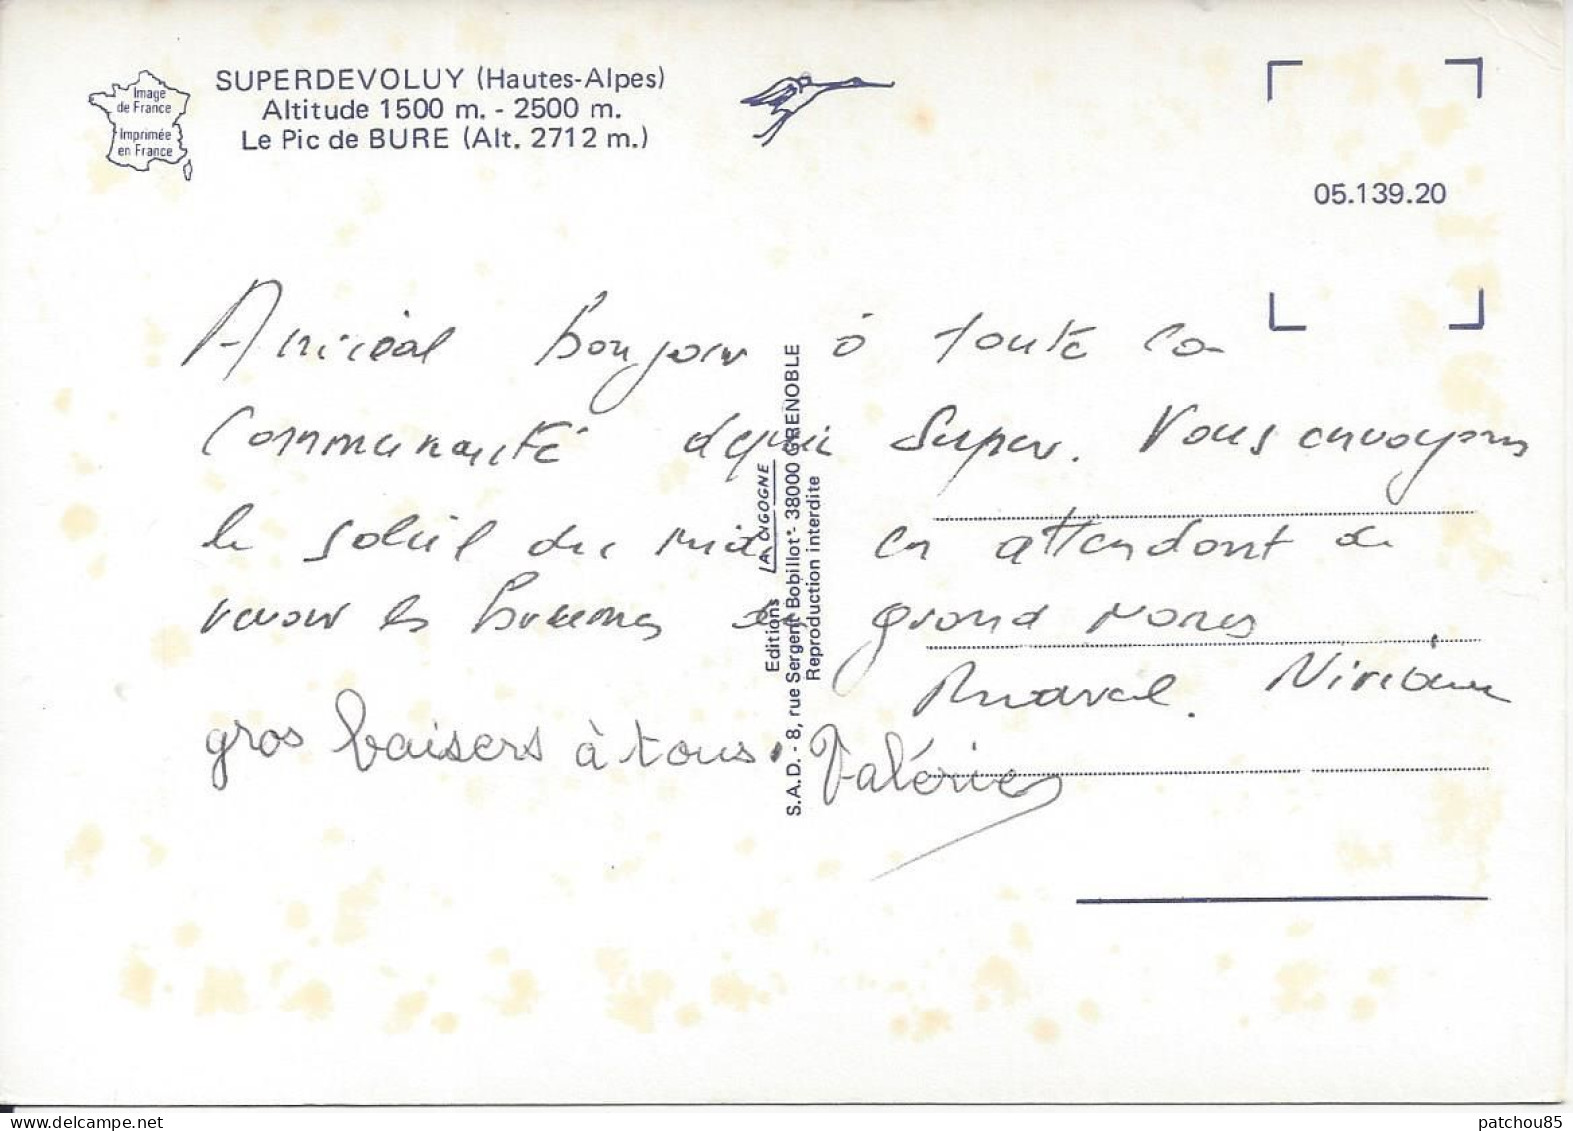 Image
de France
Imprimée
en France
SUPERDEVOLUY (Hautes-Alpes)
Altitude 1500 m. - 2500 m.
Le Pic de BURE (Alt. 2712 m.)
05.139.20
Amical bonjour à toute la
Communauté depuis Super. Vous envoyons
le soleil du midi en attendant de
revoir les brumes du grand
gros baisers à tous. Valérie
Editions LA CIGOGNE
S.A.D. - 8, rue Sergent Bobillot - 38000 GRENOBLE
Reproduction interdite
patchou85